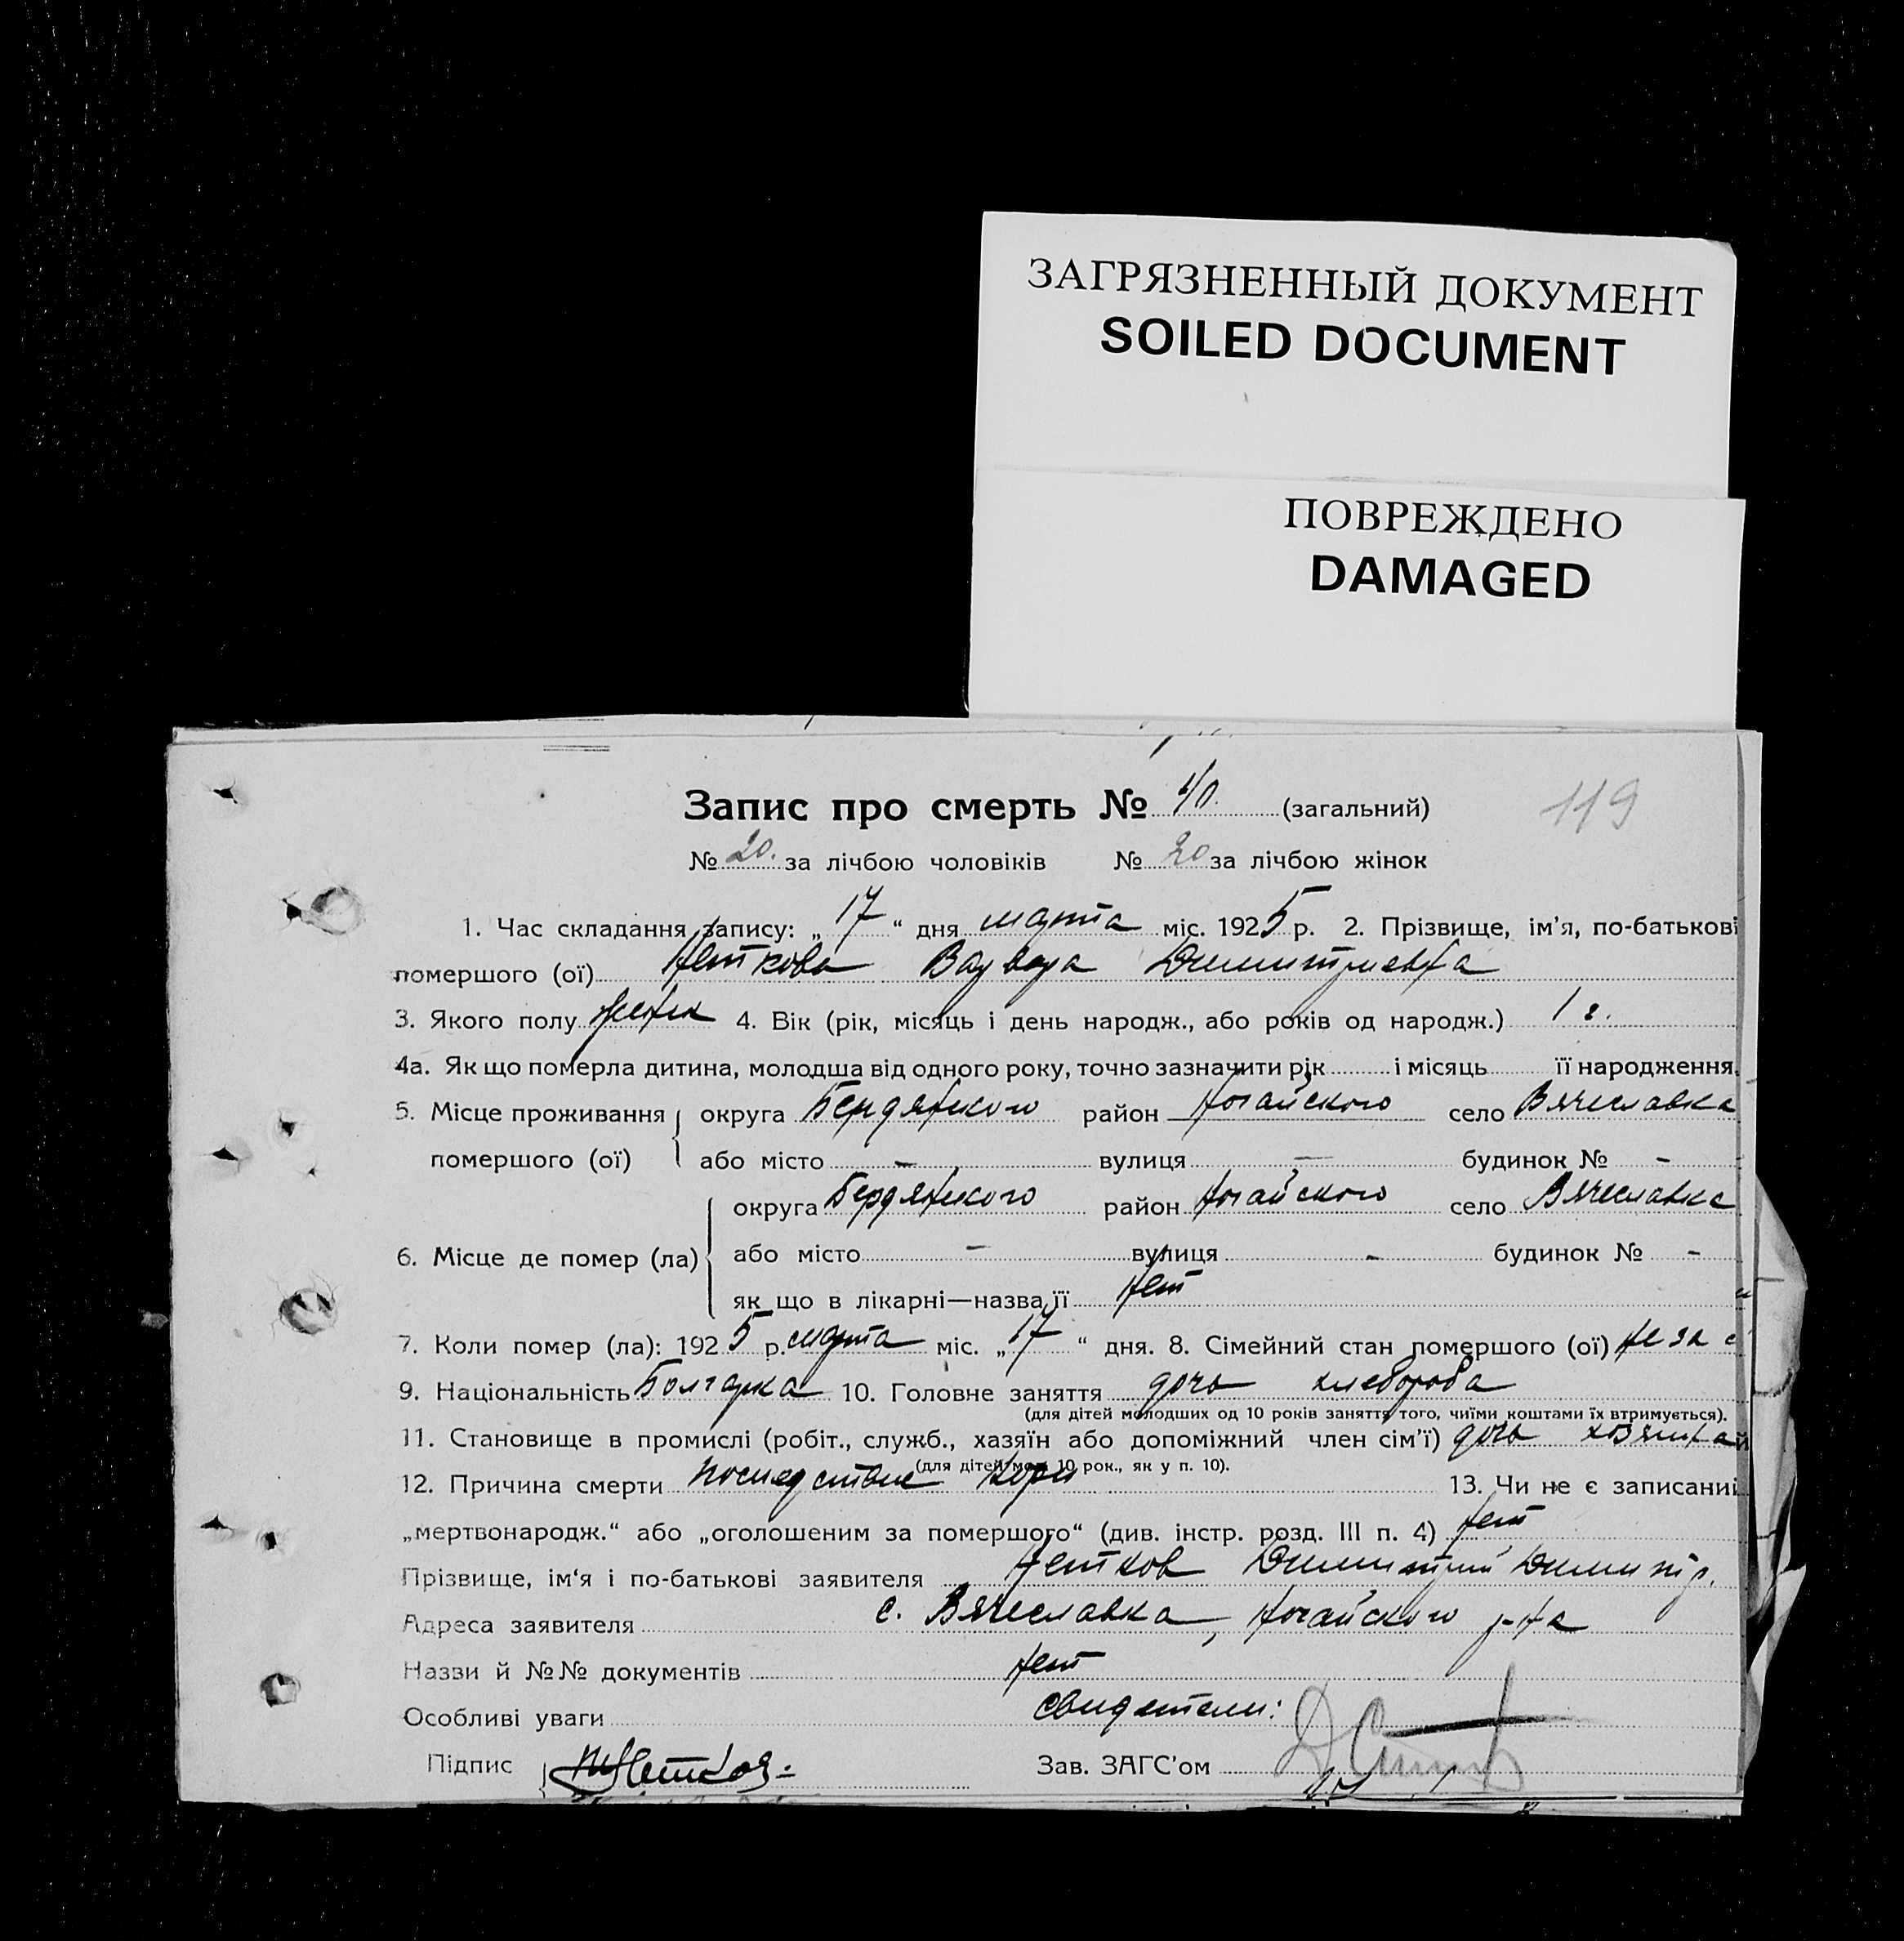 ЗАГРЯЗНЕННЫЙ ДОКУМЕНТ
SOILED DOCUMENT
ПОВРЕЖДЕНО
DAMAGED
119
Запис про смерть № 40. (загальний)
№ 20. за лічбою чоловіків № 20 за лічбою жінок
1. Час складання запису: „ 17 “ дня марта міс. 1925 р. 2. Прізвище, ім’я, по-батькові
помершого (ої) Неткова Варвара Димитриевна
3. Якого полу женск 4. Вік (рік, місяць і день народж., або років од народж.) 1 г.
4а. Як що померла дитина, молодша від одного року, точно зазначити рік і місяць її народження.
5. Місце проживання округа Бердянского район Ногайского село Вячеславка
помершого (ої) або місто – вулиця – будинок № –
округа Бердянского район Ногайского село Вячеславка
6. Місце де помер (ла) або місто – вулиця – будинок № –
як що в лікарні—назва її нет
7. Коли помер (ла): 1925 р. марта міс. „ 17 “ дня. 8. Сімейний стан помершого (ої) не за
9. Національність Болгарка 10. Головне заняття дочь хлебороба
(для дітей молодших од 10 років заняття того, чиїми коштами їх втримується).
11. Становище в промислі (робіт., служб., хазяїн або допоміжний член сім’ї) дочь хозяина
(для дітей мол. 10 рок., як у п. 10).
12. Причина смерти последствие кори 13. Чи не є записаний
„мертвонародж.“ або „оголошеним за помершого“ (див. інстр. розд. III п. 4) нет
Прізвище, ім‘я і по-батькові заявителя Нетков Димитрий Димитр.
Адреса заявителя с. Вячеславка, Ногайского р-на
Назви й №№ документів нет
Особливі уваги свидетели:
Підпис Зав. ЗАГС’ом